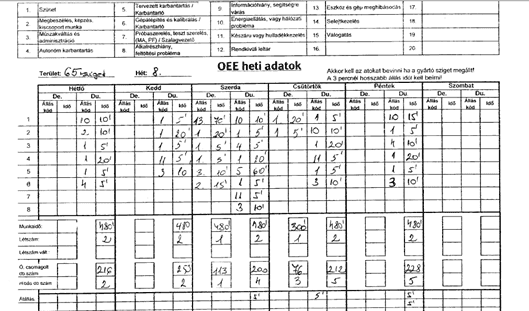 1. Szünet 5. Tervezett karbantartás / Karbantartó 9. Információhiány, segítségre várás 13. Eszköz és gép meghibásodás 17.
2. Megbeszélés, képzés, kiscsoport munka 6. Gépátépítés és kalibrálás / Karbantartó 10. Energiaellátás, vagy hálózati probléma 14. Selejtkezelés 18.
3. Műszakváltás és adminisztráció 7. Próbaszerelés, teszt szerelés (MA, FF) / Szalagvezető 11. Készáru vagy hulladékkezelés 15. Válogatás 19.
4. Autonóm karbantartás 8. Alkatrészhiány, feltöltési probléma 12. Rendkívüli leltár 16. 20.
OEE heti adatok
Terület: 65 sziget Hét: 8.
Akkor kell az adatokat bevinni ha a gyártó sziget megállt!
A 3 percnél hosszabb állás időt kell beírni!
Hétfő Kedd Szerda Csütörtök Péntek Szombat
De. Du. De. Du. De. Du. De. Du. De. Du. De. Du.
Állás kód Idő Állás kód Idő Állás kód Idő Állás kód Idő Állás kód Idő Állás kód Idő Állás kód Idő Állás kód Idő Állás kód Idő Állás kód Idő Állás kód Idő Állás kód Idő
1 10 10' 1 5' 13 70' 10 10' 1 20' 1 5' 10 15'
2 2 10' 1 20' 1 20' 1 5' 1 5' 10 10' 1 5'
3 1 5' 1 5' 1 5' 4 5' 1 20' 4 10'
4 1 20' 11 5' 1 5' 1 20' 11 5' 1 20'
5 1 5' 3 10 3 10' 5 60' 1 5' 1 5'
6 4 5' 2 15' 1 5' 3 10' 3 10'
7 11 5'
8 3 10'
Munkaidő 480' 480 480' 480' 300' 480' 480'
Létszám 2 2 1 2 1 2 2
Létszám vált
Ö. csomagolt db szám 216 113 200 76 212 228
Hibás db szám 2 2 1 4 3 5 5
Átállás 5' 5'
5'